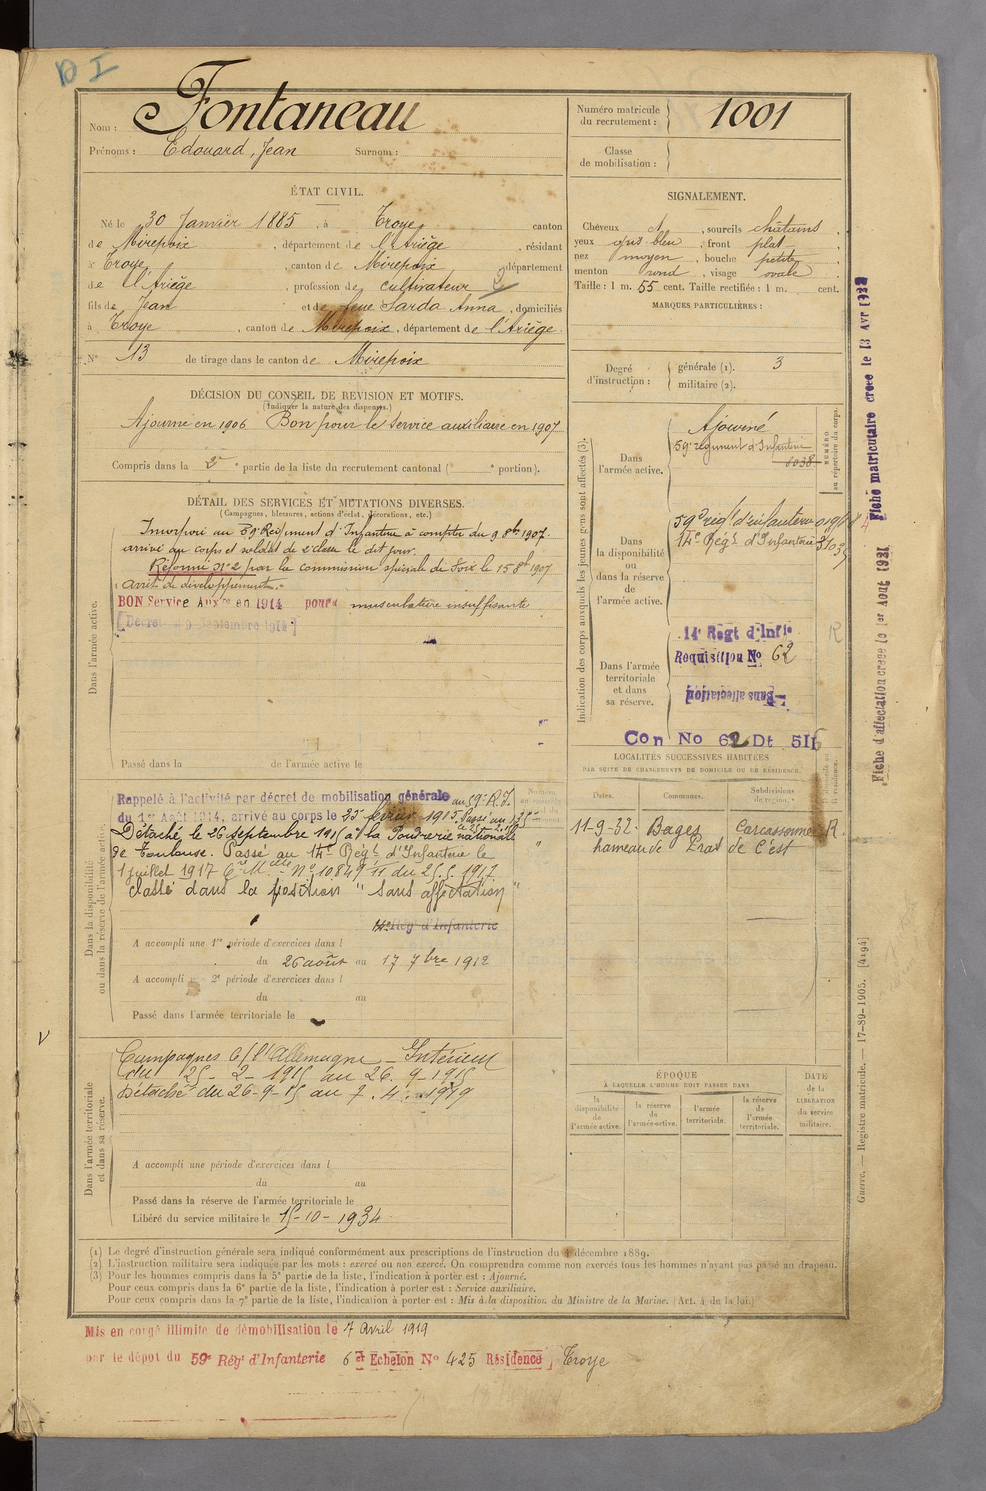 D I
Nom : Fontaneau
Prénoms : Edouard, Jean Surnom :
Numéro matricule du recrutement : 1001
Classe de mobilisation :
ÉTAT CIVIL.
Né le 30 Janvier 1885, à Troye, canton
de Mirepoix, département de l'Ariège, résidant
à Troye, canton de Mirepoix, département
de l'Ariège, profession de cultivateur
fils de Jean et de feue Sarda Anna, domiciliés
à Troye, canton de Mirepoix, département de l'Ariège.
N° 13 de tirage dans le canton de Mirepoix
SIGNALEMENT.
Cheveux , sourcils châtains
yeux gris bleu, front plat
nez moyen, bouche petite
menton rond, visage ovale
Taille : 1 m. 55 cent. Taille rectifiée : 1 m. cent.
MARQUES PARTICULIÈRES :
Degré d'instruction : générale (1). 3
militaire (2).
DÉCISION DU CONSEIL DE REVISION ET MOTIFS.
(Indiquer la nature des dispenses.)
Ajourné en 1906 Bon pour le Service auxiliaire en 1907
Compris dans la 2e partie de la liste du recrutement cantonal ( e portion).
DÉTAIL DES SERVICES ET MUTATIONS DIVERSES.
(Campagnes, blessures, actions d'éclat, décorations, etc.)
Dans l'armée active.
Incorporé au 59e Régiment d'Infanterie à compter du 9 8bre 1907.
arrivé au corps et soldat de 2e classe le dit jour.
Réformé N°2 par la commission spéciale de Foix le 15 8bre 1907
arrêt de développement.
BON Service Auxre en 1914 pour musculature insuffisante
[Décret du 9 Septembre 1914]
Passé dans la de l'armée active le
Indication des corps auxquels les jeunes gens sont affectés (3).
Dans l'armée active.
Ajourné
59e régiment d'Infanterie
NUMÉRO au répertoire du corps.
Dans la disponibilité ou dans la réserve de l'armée active.
59e régt d'infanterie
14e Régt d'Infanterie
Dans l'armée territoriale et dans sa réserve.
14e Regt d'Infie
Requisition No 62
Sans affectation
R
Con No 62 Dt 511
Fiche matriculaire créée le 13 Avr 1928
Fiche d'affectation créée le 1er Aout 1931
LOCALITÉS SUCCESSIVES HABITÉES
PAR SUITE DE CHANGEMENTS DE DOMICILE OU DE RÉSIDENCE.
Dates. Communes. Subdivisions de région.
11-9-32. Bages Carcassonne R.
hameau de Prat de C'est
Dans la disponibilité ou dans la réserve de l'armée active.
Rappelé à l'activité par décret de mobilisation générale au 59e R.I.
du 1er Août 1914, arrivé au corps le 25 février 1915. Passé au
Détaché le 26 septembre 1915 à la Poudrerie nationale
de Toulouse. Passé au 14e Régt d'Infanterie le
1 juillet 1917 Cre Mlle N° 10849 11 du 25.5.1917
Classé dans la position "Sans affectation"
14e Régt d'Infanterie
A accompli une 1re période d'exercices dans l
du 26 août au 17 7bre 1912
A accompli une 2e période d'exercices dans l
du au
Passé dans l'armée territoriale le
Dans l'armée territoriale et dans sa réserve.
Campagnes c/ l'Allemagne — Intérieur
du 25-2-1915 au 26-9-1915
Détaché du 26-9-15 au 7.4.1919
A accompli une période d'exercices dans l
du au
Passé dans la réserve de l'armée territoriale le
Libéré du service militaire le 15-10-1934
ÉPOQUE
À LAQUELLE L'HOMME DOIT PASSER DANS
la disponibilité de l'armée active.
la réserve de l'armée active.
l'armée territoriale.
la réserve de l'armée territoriale.
DATE de la LIBÉRATION du service militaire.
Guerre. — Registre matricule. — 17-89-1905. [4194]
V
(1) Le degré d'instruction générale sera indiqué conformément aux prescriptions de l'instruction du 4 décembre 1889.
(2) L'instruction militaire sera indiquée par les mots : exercé ou non exercé. On comprendra comme non exercés tous les hommes n'ayant pas passé au drapeau.
(3) Pour les hommes compris dans la 5e partie de la liste, l'indication à porter est : Ajourné.
Pour ceux compris dans la 6e partie de la liste, l'indication à porter est : Service auxiliaire.
Pour ceux compris dans la 7e partie de la liste, l'indication à porter est : Mis à la disposition du Ministre de la Marine. (Art. 4 de la loi.)
Mis en congé illimité de démobilisation le 7 Avril 1919
par le dépôt du 59e Régt d'Infanterie 6 et Echelon No 425 Résidence, Troye